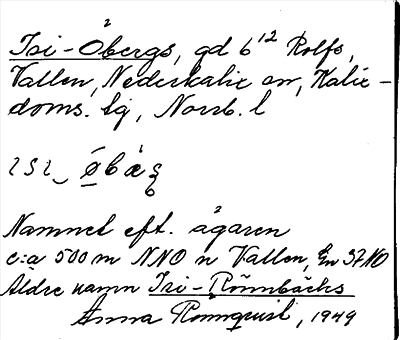 Isi-Öbergs, gd 6¹² Rolfs,
Vallen, Nederkalix sn, Kalix-
doms. lg, Norrb. l
Namnet eft. ägaren
c:a 500 m NNO n Vallen, 37 NO
Äldre namn Isi-Rönnbäcks
Anna Rönnquist, 1949